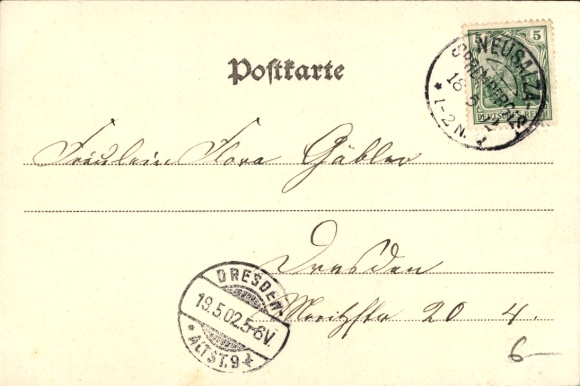 Postkarte
5
NEUSALZA
SPREMBERG
18 5
* 1-2 N.
Fräulein Flora Gäbler
Dresden
Moritzstr 20 4.
DRESDEN
19.5.02.5-6V.
* ALTST. 9
6-